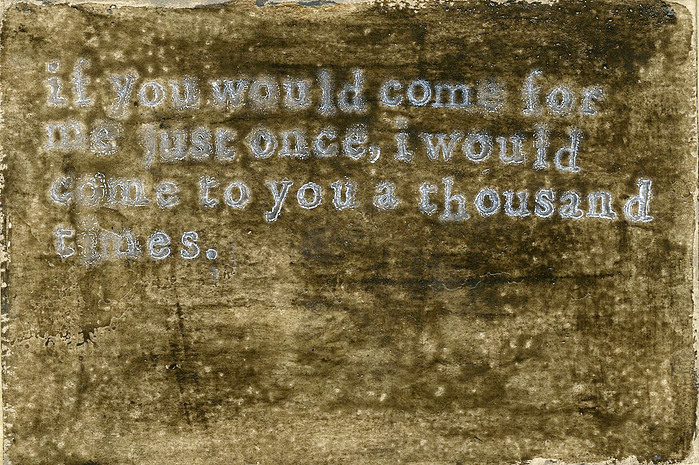 if you would come for
me just once, i would
come to you a thousand
times.